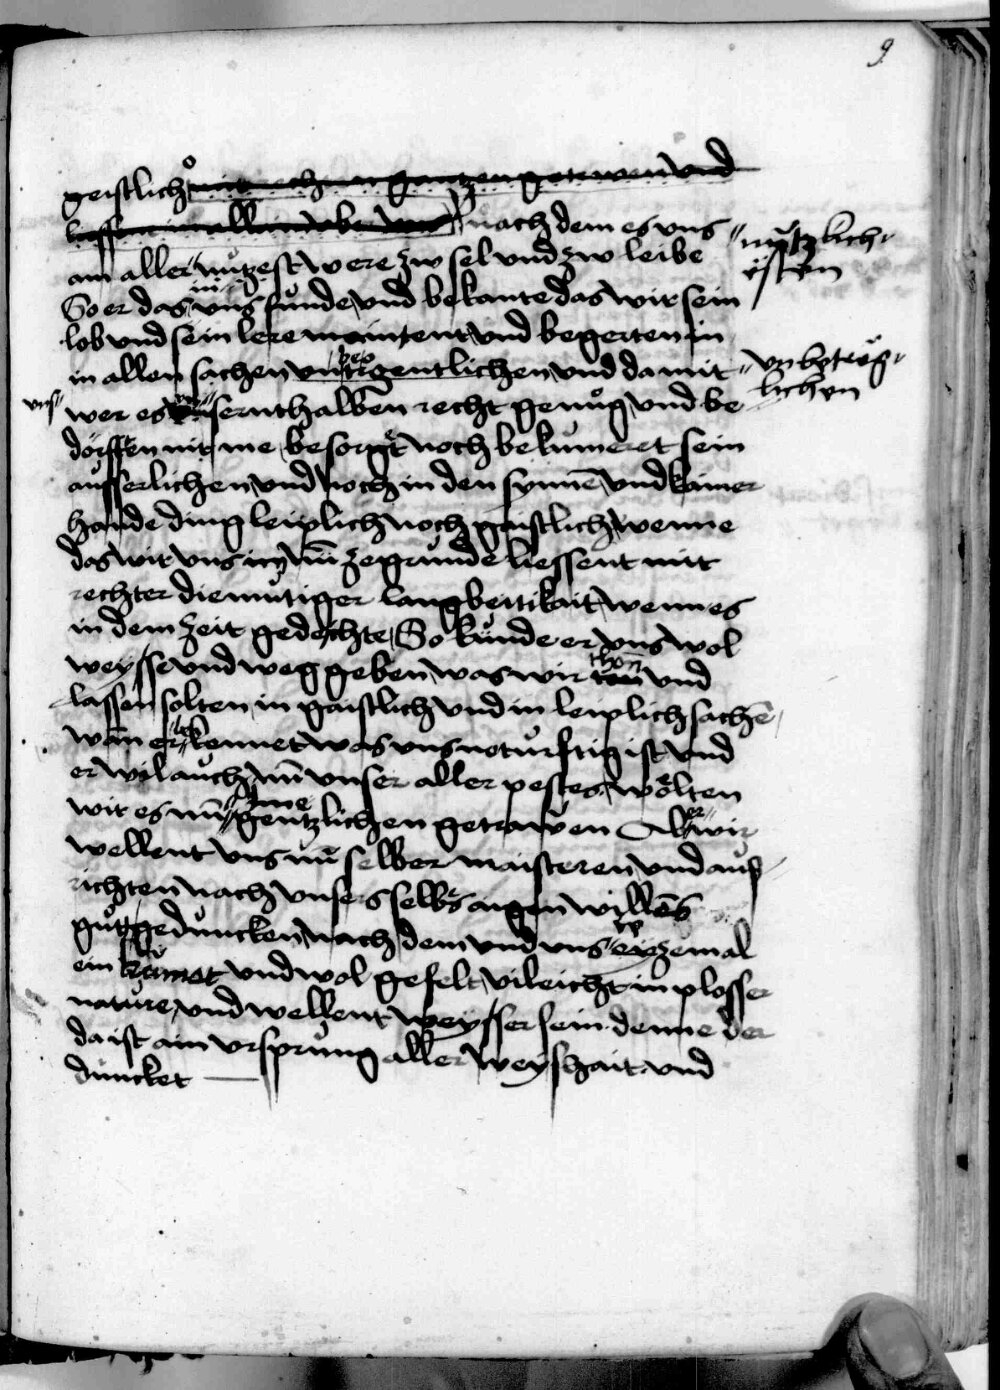 9
geistlich mit rechtem gantzen getrewen und
lassen in allain abe und nach dem es uns
am aller nutzest were zw sel und zw leibe
nützlich
isten
So er das in uns funde und bekante das wir sein
lob und sein lere maintent und begerten in
in allen sachen untrogentlichen und da mit
unbetrög
lichen
wer es unsernthalben recht genug und be
uns
dorfften nit me besorgt noch bekumeret sein
ausserlichen und noch in den synnē und kainer
hande ding leiplich noch gaistlich wenne
das wir uns im zegrunde liessent mitt
rechter diemutiger langbeitikait wenn es
in dem zeit gedechte So kunde er uns wol
weysse und weg geben was wir thon und
lassen solten in gaistlich und in leiplich sachē
wann er kennet was uns noturftig ist und
er wil auch nū unser aller pestes wolten
wir es nū jme gentzlichen getrawen Aber wir
wellent uns nū selber maisteren und auß
richten nach unsers selbs aigen willens
gut geduncken nach dem und uns ye zemal
ein kumet und wol gefelt vileicht in plosser
nature und wellent weysser sein denne der
da ist ain ursprung aller weyshait und
duncket